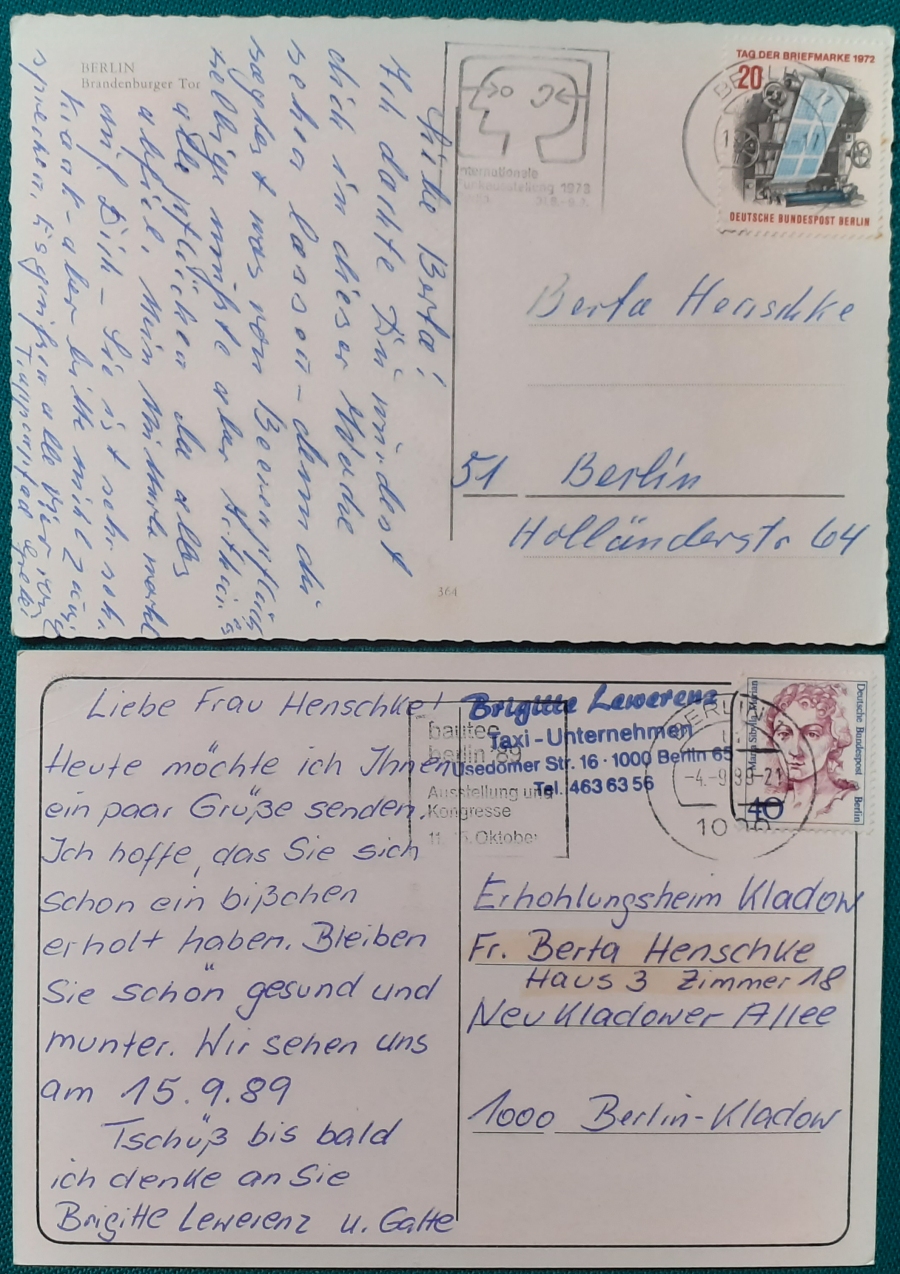 BERLIN
Brandenburger Tor
Liebe Berta!
Ich dachte Du würdest
dich in dieser Woche
sehen lassen - denn du
sagtest was von
selbige müßte aber
alle
Mein
auf Dich - Sie ist sehr
krank - aber bitte nicht
sprechen, es alle
Internationale
Funkausstellung 1973
31.8.-9.9.
BERLIN 11
TAG DER BRIEFMARKE 1972
20
DEUTSCHE BUNDESPOST BERLIN
Berta Henschke
51 Berlin
Holländerstr 64
364
Liebe Frau Henschke!
Heute möchte ich Ihnen
ein paar Grüße senden,
Ich hoffe, das Sie sich
schon ein bißchen
erholt haben. Bleiben
Sie schön gesund und
munter. Wir sehen uns
am 15.9.89
Tschüß bis bald
ich denke an Sie
Brigitte Lewerenz u. Gatte
Brigitte Lewerenz
Taxi-Unternehmen
Usedomer Str. 16 · 1000 Berlin 65
Tel. 463 63 56
bautec
berlin '89
Ausstellung und
Kongresse
11. Oktober
BERLIN 11
-4.-9.89-21
1000
Maria Sibylla Merian
Deutsche Bundespost Berlin
40
Erhohlungsheim Kladow
Fr. Berta Henschke
Haus 3 Zimmer 18
Neu Kladower Allee
1000 Berlin-Kladow